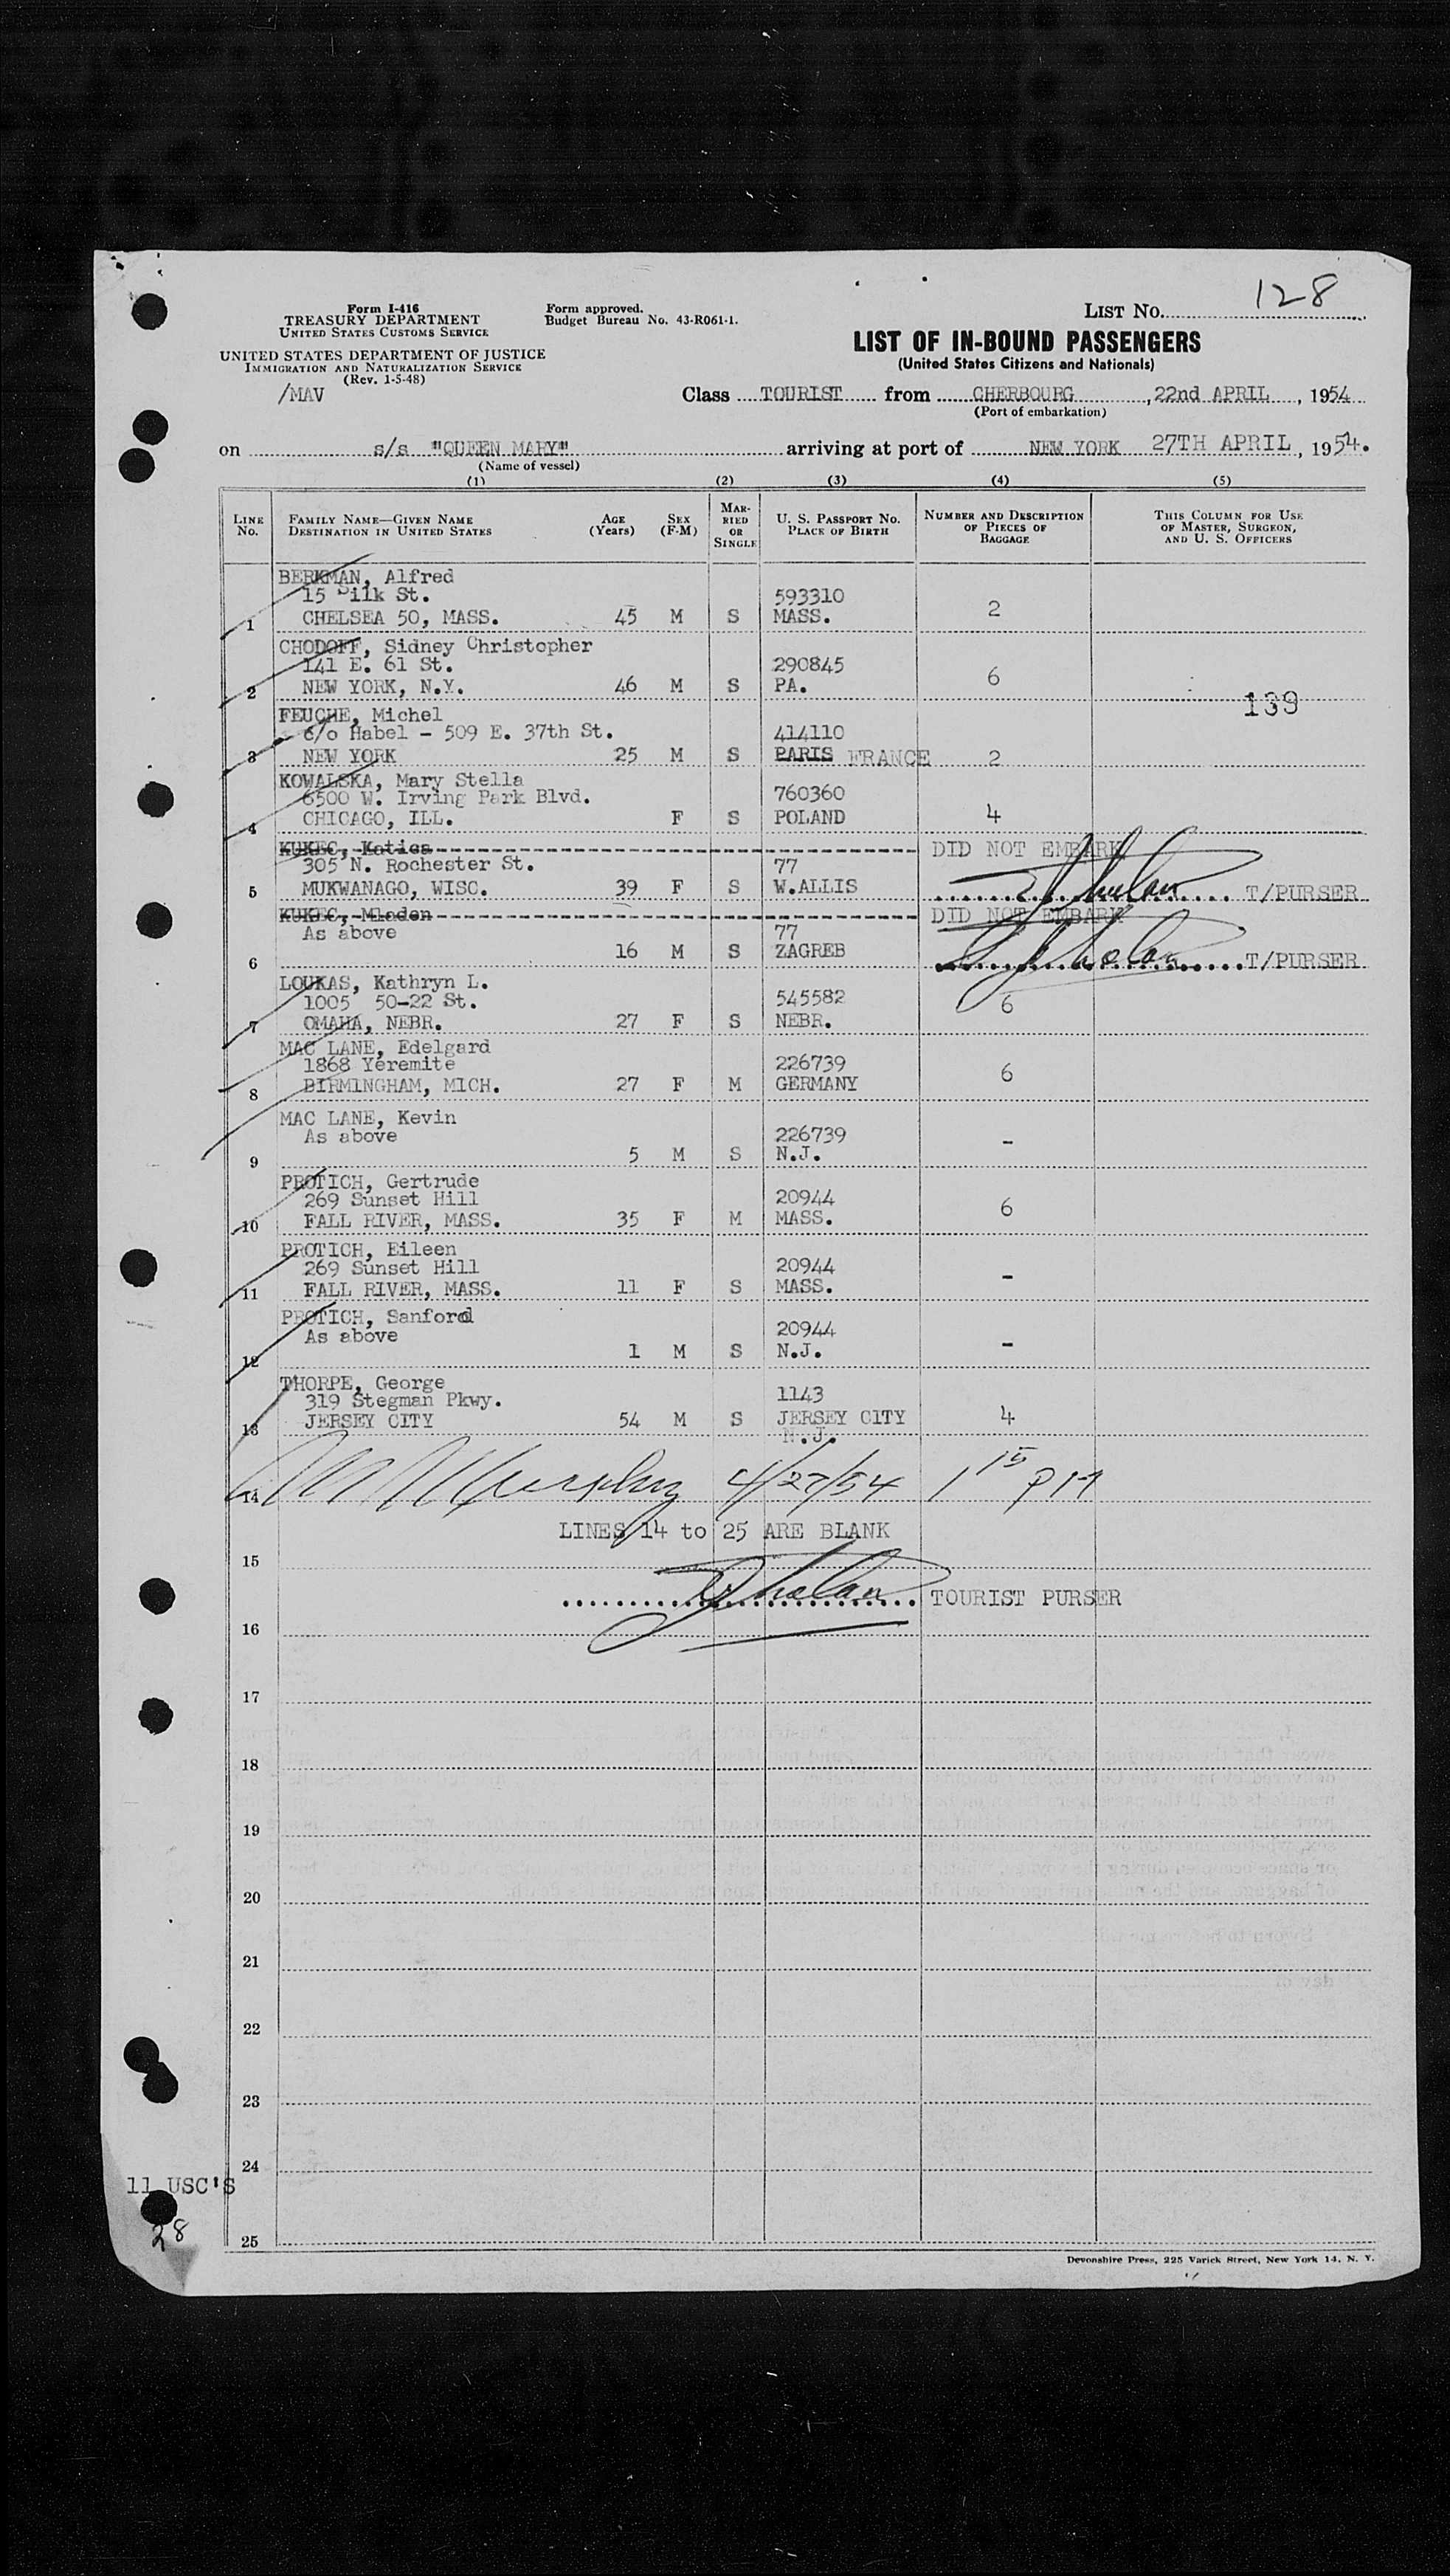 128
Form I-416
TREASURY DEPARTMENT
UNITED STATES CUSTOMS SERVICE
Form approved.
Budget Bureau No. 43-R061-1.
LIST NO.
LIST OF IN-BOUND PASSENGERS
(United States Citizens and Nationals)
UNITED STATES DEPARTMENT OF JUSTICE
IMMIGRATION AND NATURALIZATION SERVICE
(Rev. 1-5-48)
/MAV
Class TOURIST from CHERBOURG, 22nd APRIL, 1954
(Port of embarkation)
on s/s "QUEEN MARY" arriving at port of NEW YORK 27TH APRIL, 1954.
(Name of vessel)
(1) (2) (3) (4) (5)
LINE No. FAMILY NAME—GIVEN NAME DESTINATION IN UNITED STATES AGE (Years) SEX (F-M) MARRIED OR SINGLE U. S. PASSPORT NO. PLACE OF BIRTH NUMBER AND DESCRIPTION OF PIECES OF BAGGAGE THIS COLUMN FOR USE OF MASTER, SURGEON, AND U. S. OFFICERS
BERKMAN, Alfred
15 Silk St. 593310
1 CHELSEA 50, MASS. 45 M S MASS. 2
CHODOFF, Sidney Christopher
141 E. 61 St. 290845
2 NEW YORK, N.Y. 46 M S PA. 6
139
FEUCHE, Michel
c/o Habel - 509 E. 37th St. 414110
3 NEW YORK 25 M S PARIS FRANCE 2
KOWALSKA, Mary Stella
6500 W. Irving Park Blvd. 760360
4 CHICAGO, ILL. F S POLAND 4
KUKEC, Katica DID NOT EMBARK
305 N. Rochester St. 77
5 MUKWANAGO, WISC. 39 F S W.ALLIS T/PURSER
KUKEC, Mladen DID NOT EMBARK
As above 77
6 16 M S ZAGREB T/PURSER
LOUKAS, Kathryn L.
1005 50-22 St. 545582
7 OMAHA, NEBR. 27 F S NEBR. 6
MAC LANE, Edelgard
1868 Yeremite 226739
8 BIRMINGHAM, MICH. 27 F M GERMANY 6
MAC LANE, Kevin
As above 226739
9 5 M S N.J. -
PROTICH, Gertrude
269 Sunset Hill 20944
10 FALL RIVER, MASS. 35 F M MASS. 6
PROTICH, Eileen
269 Sunset Hill 20944
11 FALL RIVER, MASS. 11 F S MASS. -
PROTICH, Sanford
As above 20944
12 1 M S N.J. -
THORPE, George
319 Stegman Pkwy. 1143
13 JERSEY CITY 54 M S JERSEY CITY 4
N.J.
14 Murphy 4/27/54 1 15 PM
LINES 14 to 25 ARE BLANK
15
TOURIST PURSER
16
17
18
19
20
21
22
23
24
11 USC'S
28
25
Devonshire Press, 225 Varick Street, New York 14, N. Y.